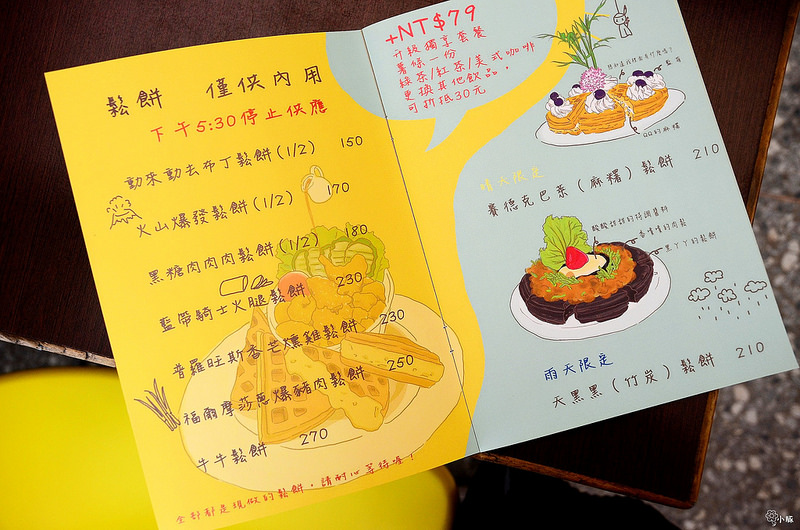 鬆餅 僅供內用
下午5:30停止供應
動來動去布丁鬆餅(1/2) 150
火山爆發鬆餅(1/2) 170
黑糖肉肉肉鬆餅(1/2) 180
藍帶騎士火腿鬆餅 230
普羅旺斯香芒燻雞鬆餅 230
福爾摩莎蔥爆豬肉鬆餅 250
牛牛鬆餅 270
全部都是現做的鬆餅，請耐心等待喔！
+NT$79
升級獨享套餐
薯條一份
綠茶/紅茶/美式咖啡
更換其他飲品，
可折抵30元
藍莓
QQ的麻糬
晴天限定
賽德克巴萊(麻糬)鬆餅 210
酸酸甜甜的特調醬料
香噴噴的肉鬆
黑ㄚㄚ的鬆餅
雨天限定
天黑黑(竹炭)鬆餅 210
小蔡